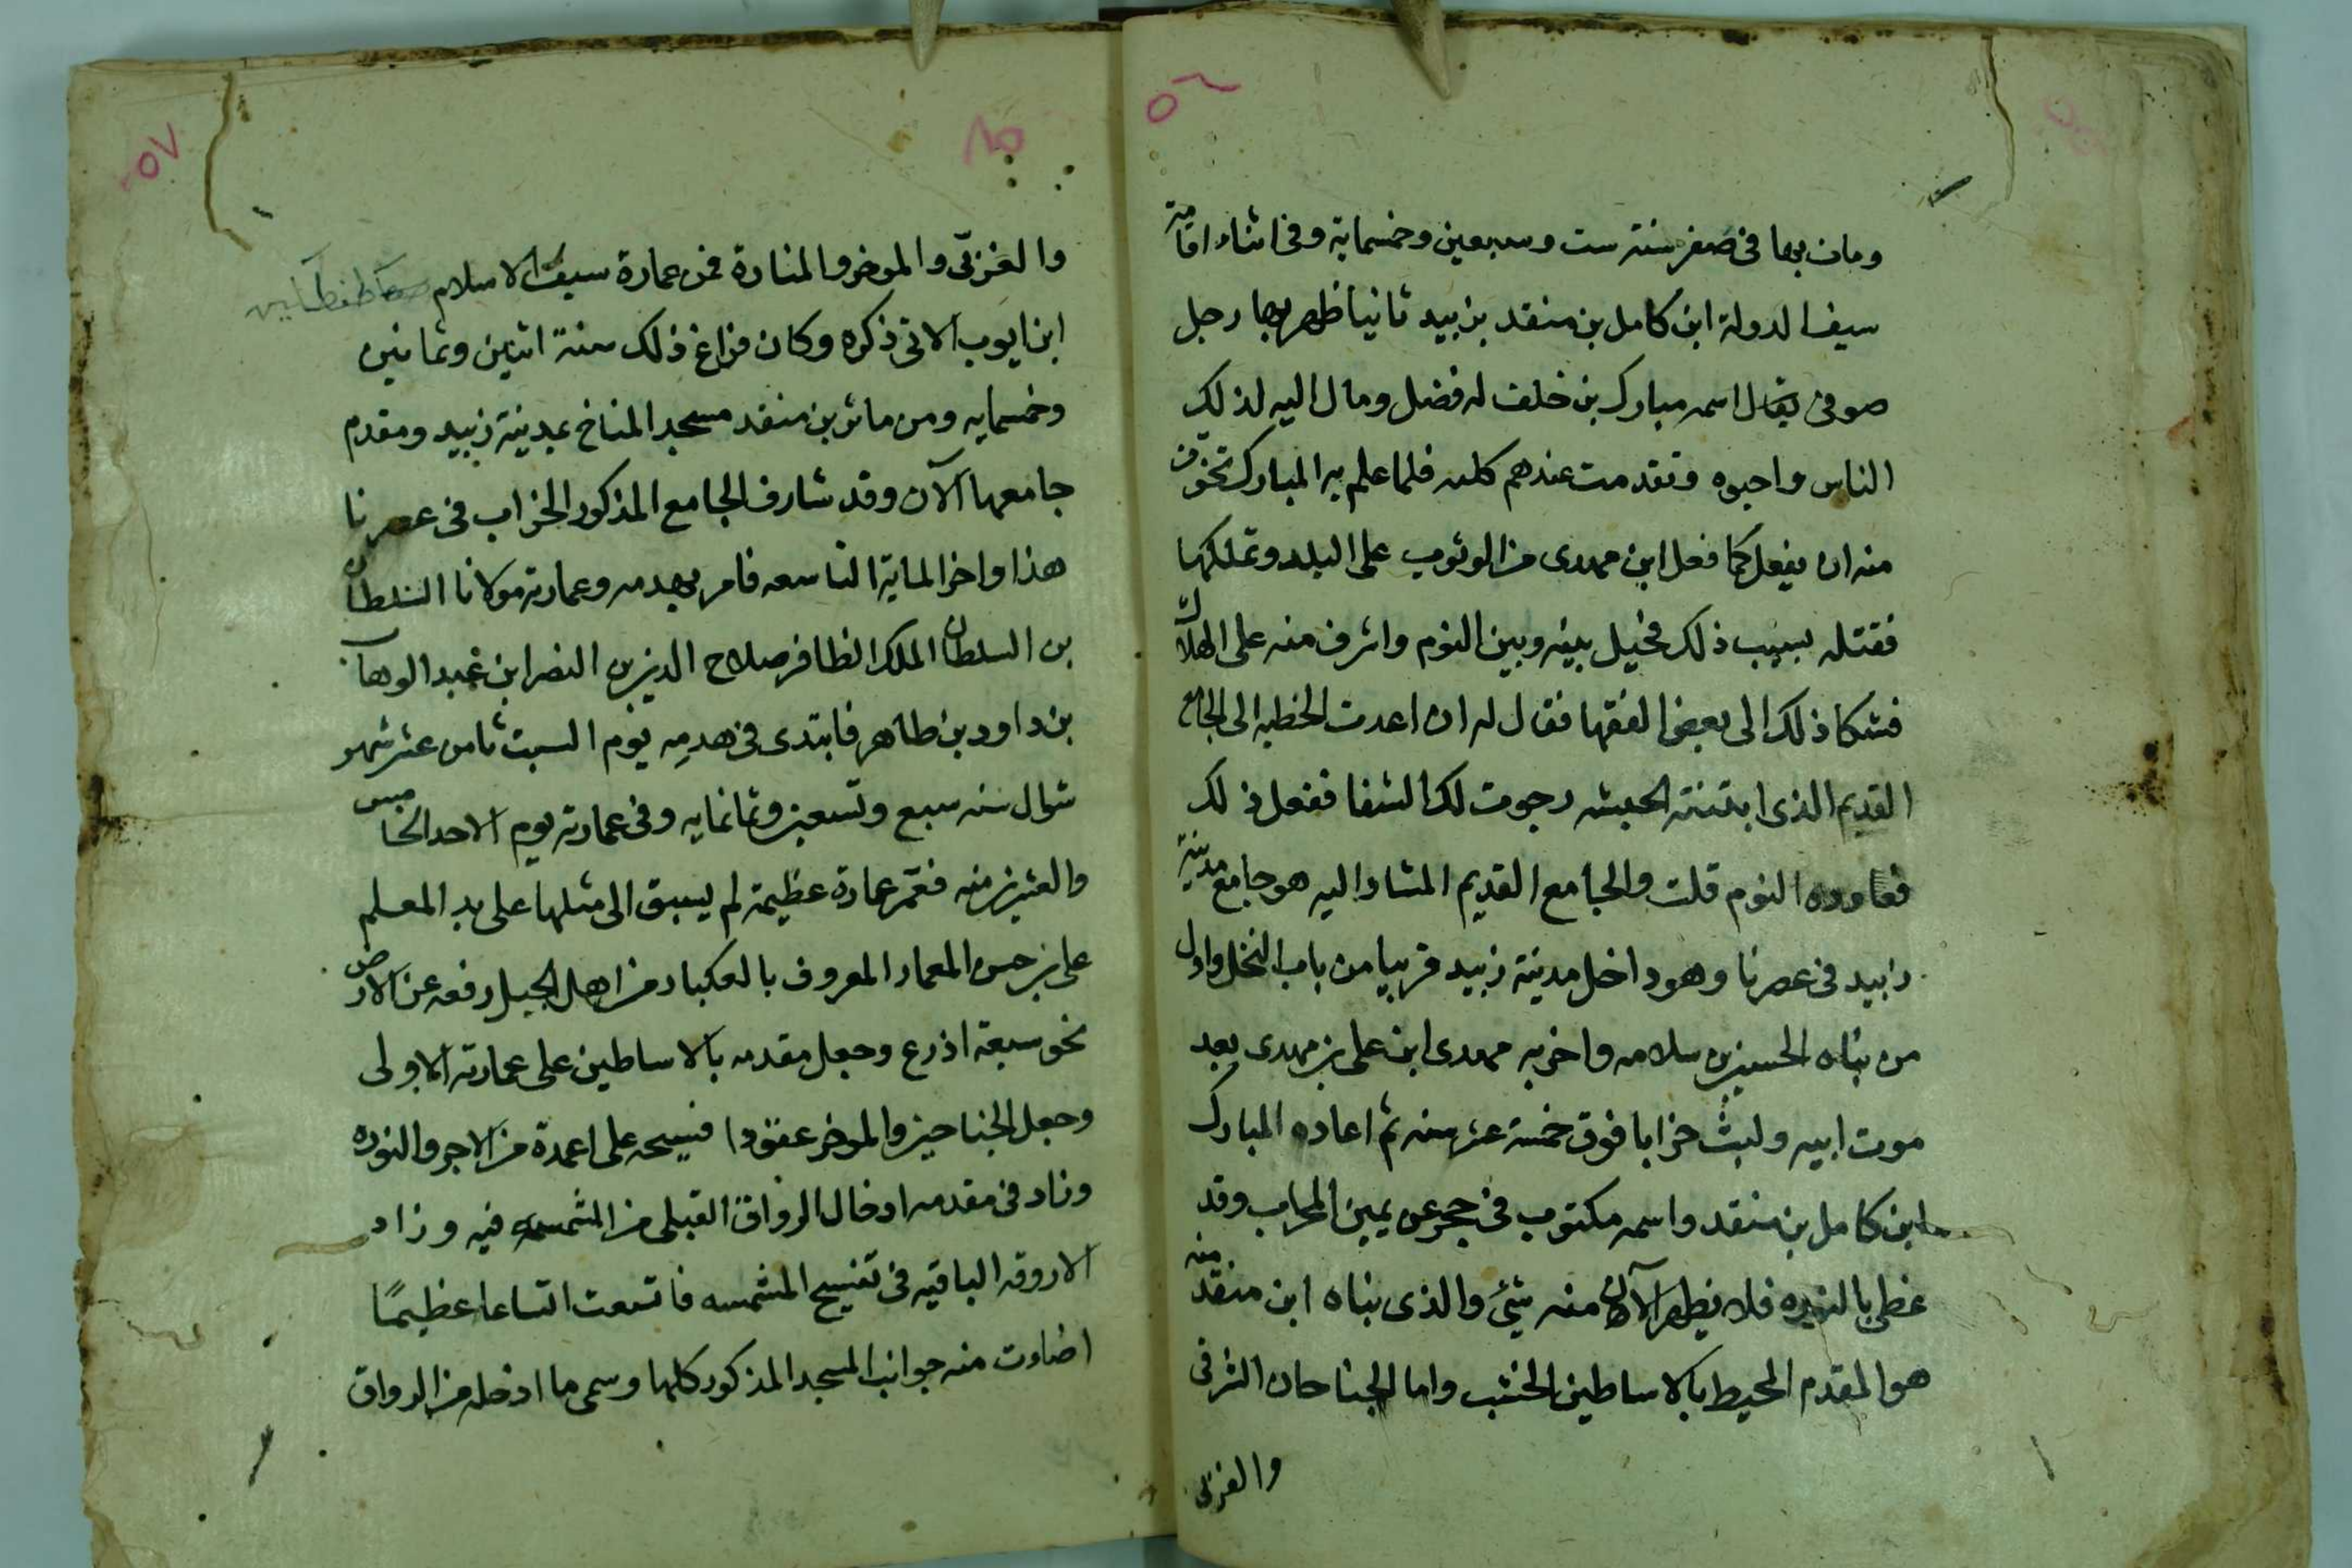 ٥٦
ومات بها فى صفر سنة ست وسبعين وخمسماية وفى اثناء اقامة
سيف الدولة ابن كامل بن منقد بزبيد ثانيا ظهر بها رجل
صوفى يقال اسمه مبارك بن خلف له فضل ومال اليه لذلك
الناس واحبوه وتقدمت عندهم كلمته فلما علم به المبارك تخوّف
منه ان يفعل كما فعل ابن مهدى من الوثوب على البلد وتملكها
فقتله بسبب ذلك فحيل بينه وبين النوم واشرف منه على الهلاك
فشكا ذلك الى بعض الفقها فقال له ان اعدت الخطبه الى الجامع
القديم الذى ابتنته الحبشه رجوت لك الشفا ففعل ذلك
فعاوده النوم قلت والجامع القديم المشار اليه هو جامع مدينة
زبيد فى عصرنا وهو داخل مدينة زبيد قريبا من باب النخل واول
من بناه الحسين بن سلامه واخربه مهدى ابن على بن مهدى بعد
موت ابيه ولبث خرابا فوق خمسة عشر سنه ثم اعاده المبارك
ابن كامل بن منقد واسمه مكتوب فى حجر عن يمين المحراب وقد
غطى بالنوره فلا يظهر الآن منه شئ والذى بناه ابن منقد منه
هو المقدم المحيط بالاساطين الخشب واما الجناحان الشرقى
والغربى
٥٧
والغربّى والموخر والمنارة فمن عمارة سيف الاسلام طغطكين
ابن ايوب الاتى ذكره وكان فراغ ذلك سنة اثنين وثمانين
وخمسمايه ومن ماثر بن منقد مسجد المناخ بمدينة زبيد ومقدم
جامعها الآن وقد شارف الجامع المذكور الخراب فى عصرنا
هذا واخر الماية التاسعه فامر بهدمه وعمارته مولانا السلطان
بن السلطان الملك الظافر صلاح الدين بن النصر ابن عبد الوهاب
بن داود بن طاهر فابتدى فى هدمه يوم السبت ثامن عشر شهر
شوال سنه سبع وتسعين وثمانمايه وفى عمارته يوم الاحد الخامس
والعشرين منه فعمّر عمارة عظيمة لم يسبق الى مثلها على يد المعلم
على بن حسن المعمار المعروف بالعكبار من اهل الجبل رفعه عن الارض
نحو سبعة اذرع وجعل مقدمه بالاساطين على عمارته الاولى
وجعل الجناحين والموخر عقودا فسيحه على اعمدة من الاجر والنوره
وزاد فى مقدمه ادخال الرواق القبلى من المشمسه فيه وزاد
الاروقه الباقيه فى تفسيح المشمسه فاتسعت اتساعا عظيمًا
اضاوت منه جوانب المسجد المذكور كلها وسمى ما ادخله من الرواق